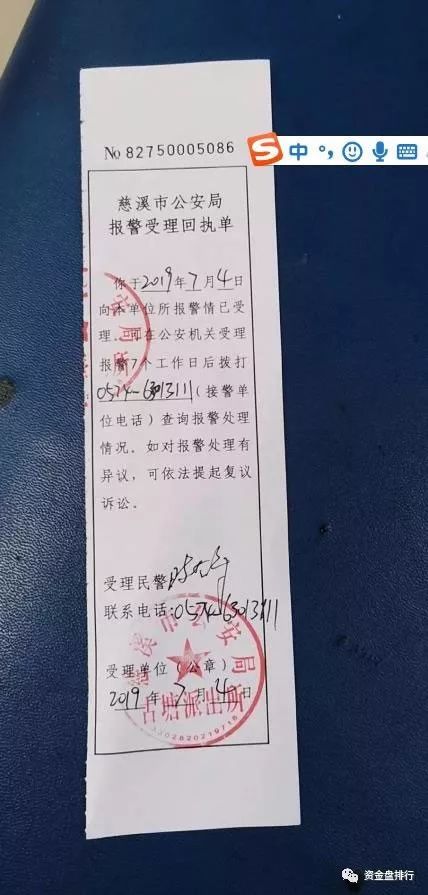 No 82750005086
中
慈溪市公安局
报警受理回执单
你于2019年7月4日
向本单位所报警情已受
理,可在公安机关受理
报警7个工作日后拨打
0574-63013111(接警单
位电话)查询报警处理
情况。如对报警处理有
异议,可依法提起复议
诉讼。
受理民警
联系电话:0574-63013111
受理单位(公章)
2019年7月4日
慈溪市公安局
古塘派出所
3302820219718
资金盘排行